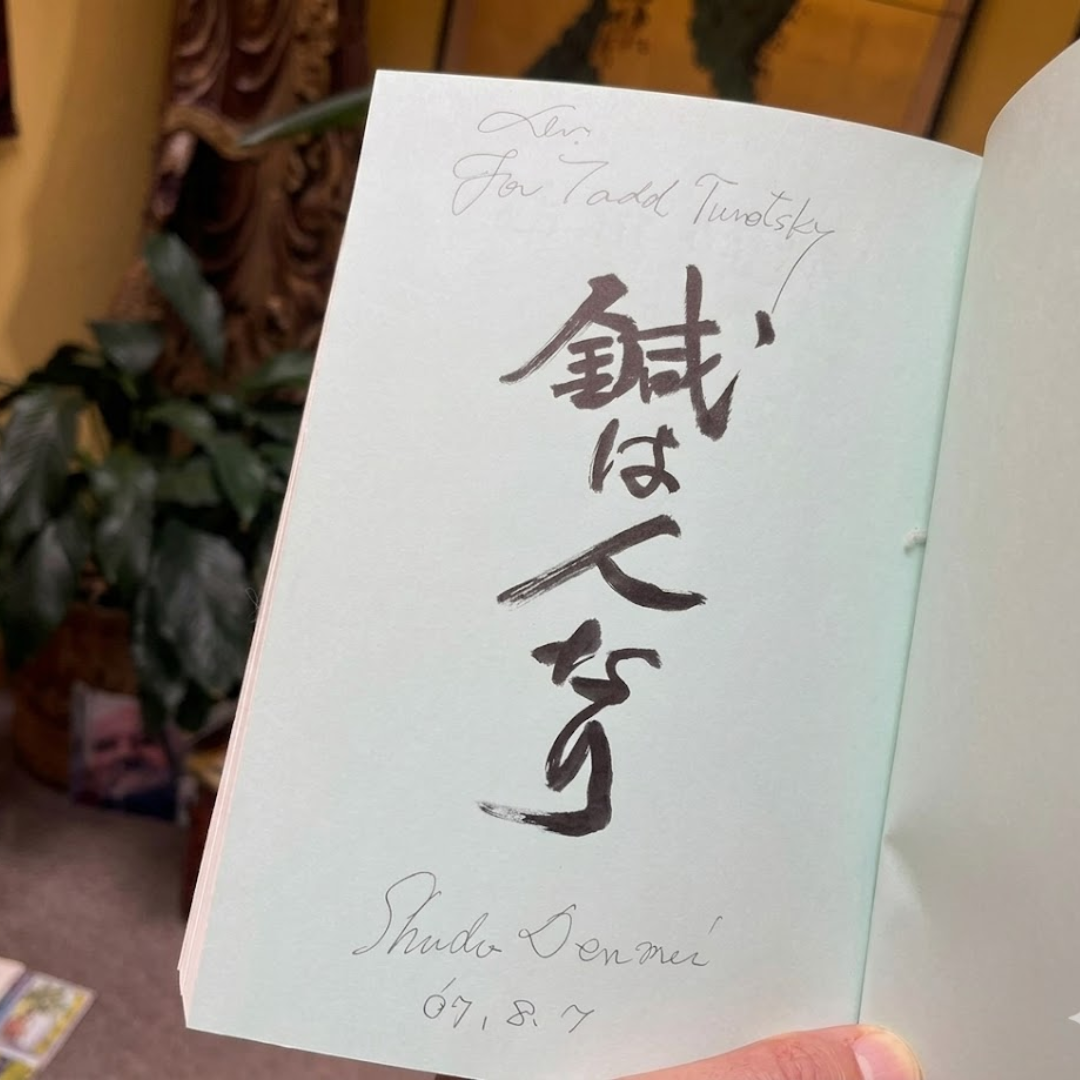 For Tadd Turotsky
鍼は人なり
Shudo Denmei
'07, 8. 7